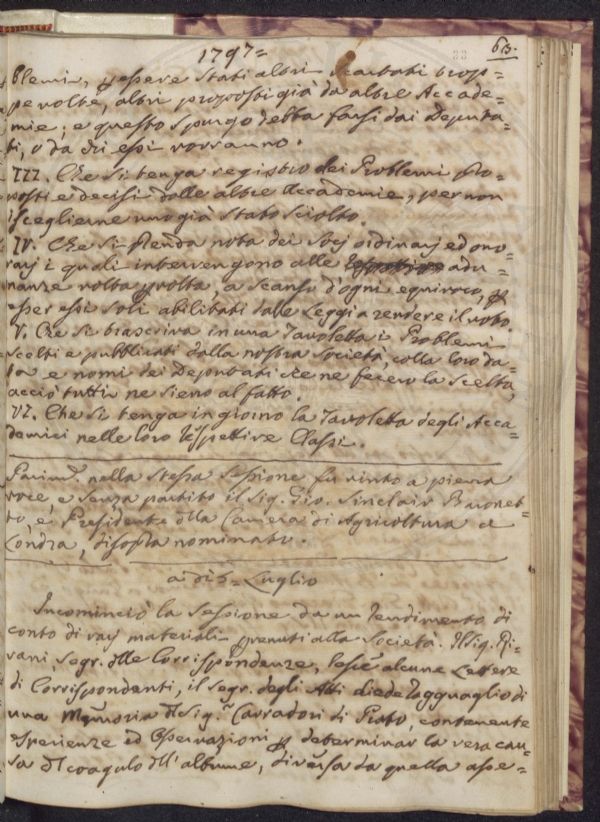 1797=
63.
blemi, p essere stati altri scartati trop=
pe volte, altri proposti già da altre Accade=
mie; e questo spurgo debba farsi dai Deputa=
ti, o da chi essi vorranno.
III. Che si tenga registro dei Problemi pro=
posti e decisi dalle altre Accademie, per non
isceglierne uno già stato sciolto.
IV. Che si prenda nota dei Socj ordinarj ed ono=
rarj i quali intervengono alle adu=
nanze volta p volta, a scanso d'ogni equivoco, p
esser essi soli abilitati dalle Leggi a rendere il voto.
V. Che si trascriva in una Tavoletta i Problemi
scelti e pubblicati dalla nostra Società, colla loro da=
ta e nomi dei Deputati che ne fecero la scelta,
acciò tutti ne sieno al fatto.
VI. Che si tenga in giorno la Tavoletta degli Acca=
demici nelle loro respettive Classi.
Parimᵉ. nella stessa Sessione fu vinto a piena
voce, e senza partito il Sig. Gio. Sinclair Baronet=
to, e Presidente dlla Camera di Agricoltura di
Londra, disopra nominato.
a dì 5= Luglio
Incominciò la Sessione da un rendimento di
conto di varj materiali pvenuti alla Società. Il Sig. Ri=
vani, Segr. dlle Corrispondenze, lesse alcune Lettere
di Corrispondenti, il Segr. degli Atti diede ragguaglio di
una Memoria dl Sig.ʳ Carradori di Prato, contenente
esperienze ed Osservazioni p determinar la vera cau=
sa dl coagulo dll' albume, diversa da quella asse=